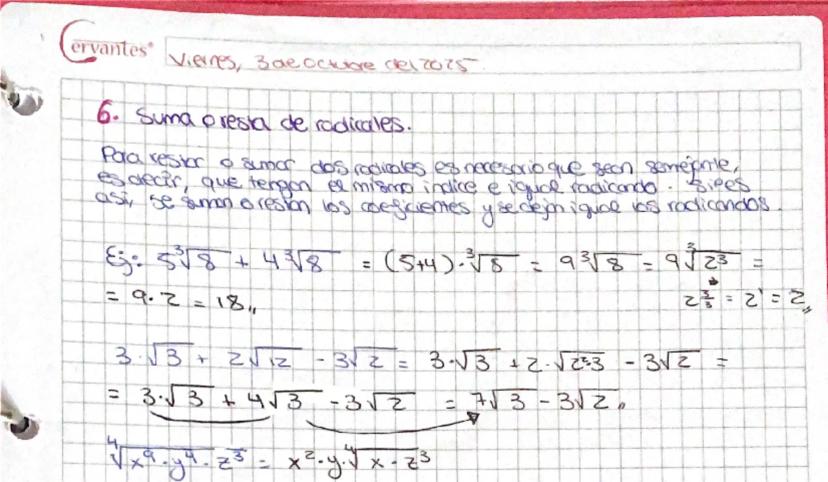 Cervantes®
Viernes, 3 de Octubre del 2025.
6. Suma o resta de radicales.
Para restar o sumar dos radicales es necesario que sean semejante,
es decir, que tengan el mismo índice e igual radicando. Si es
así, se suman o restan los coeficientes y se dejan igual los radicandos.
Ej: 5∛8 + 4∛8 = (5+4)·∛8 = 9∛8 = 9∛2³ =
= 9·2 = 18,, 2^(3/3) = 2¹ = 2,,
3·√3 + 2√12 - 3√2 = 3·√3 + 2·√2²·3 - 3√2 =
= 3·√3 + 4√3 - 3√2 = 7√3 - 3√2,,
∜x⁹·y⁴·z³ = x²·y·∜x·z³